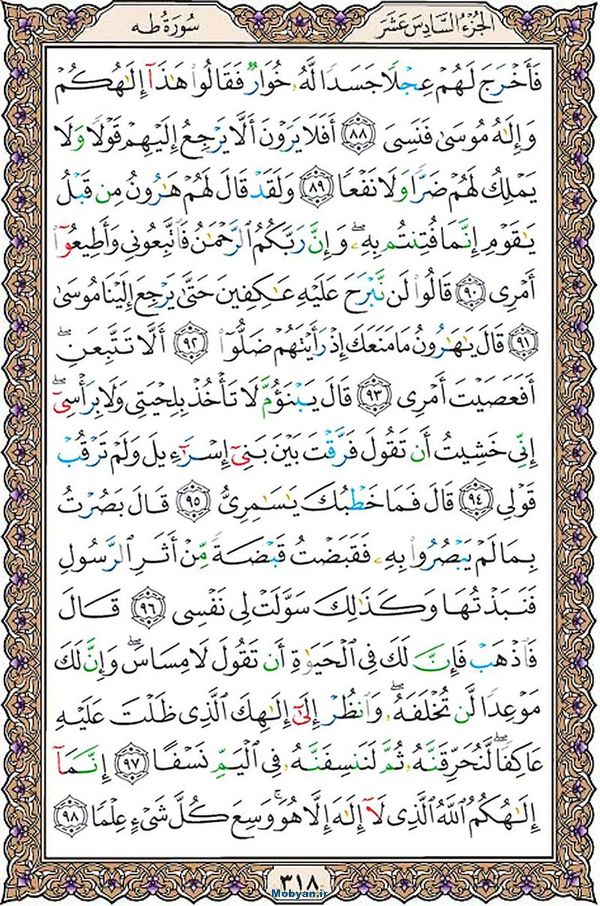 الجزء السادس عشر
سورة طه
فَأَخْرَجَ لَهُمْ عِجْلًا جَسَدًا لَّهُۥ خُوَارٌ فَقَالُوا۟ هَٰذَآ إِلَٰهُكُمْ
وَإِلَٰهُ مُوسَىٰ فَنَسِىَ ﴿٨٨﴾ أَفَلَا يَرَوْنَ أَلَّا يَرْجِعُ إِلَيْهِمْ قَوْلًا وَلَا
يَمْلِكُ لَهُمْ ضَرًّا وَلَا نَفْعًا ﴿٨٩﴾ وَلَقَدْ قَالَ لَهُمْ هَٰرُونُ مِن قَبْلُ
يَٰقَوْمِ إِنَّمَا فُتِنتُم بِهِۦ ۖ وَإِنَّ رَبَّكُمُ ٱلرَّحْمَٰنُ فَٱتَّبِعُونِى وَأَطِيعُوٓا۟
أَمْرِى ﴿٩٠﴾ قَالُوا۟ لَن نَّبْرَحَ عَلَيْهِ عَٰكِفِينَ حَتَّىٰ يَرْجِعَ إِلَيْنَا مُوسَىٰ
﴿٩١﴾ قَالَ يَٰهَٰرُونُ مَا مَنَعَكَ إِذْ رَأَيْتَهُمْ ضَلُّوٓا۟ ﴿٩٢﴾ أَلَّا تَتَّبِعَنِ ۖ
أَفَعَصَيْتَ أَمْرِى ﴿٩٣﴾ قَالَ يَبْنَؤُمَّ لَا تَأْخُذْ بِلِحْيَتِى وَلَا بِرَأْسِىٓ ۖ
إِنِّى خَشِيتُ أَن تَقُولَ فَرَّقْتَ بَيْنَ بَنِىٓ إِسْرَٰٓءِيلَ وَلَمْ تَرْقُبْ
قَوْلِى ﴿٩٤﴾ قَالَ فَمَا خَطْبُكَ يَٰسَٰمِرِىُّ ﴿٩٥﴾ قَالَ بَصُرْتُ
بِمَا لَمْ يَبْصُرُوا۟ بِهِۦ فَقَبَضْتُ قَبْضَةً مِّنْ أَثَرِ ٱلرَّسُولِ
فَنَبَذْتُهَا وَكَذَٰلِكَ سَوَّلَتْ لِى نَفْسِى ﴿٩٦﴾ قَالَ
فَٱذْهَبْ فَإِنَّ لَكَ فِى ٱلْحَيَوٰةِ أَن تَقُولَ لَا مِسَاسَ ۖ وَإِنَّ لَكَ
مَوْعِدًا لَّن تُخْلَفَهُۥ ۖ وَٱنظُرْ إِلَىٰٓ إِلَٰهِكَ ٱلَّذِى ظَلْتَ عَلَيْهِ
عَاكِفًا ۖ لَّنُحَرِّقَنَّهُۥ ثُمَّ لَنَنسِفَنَّهُۥ فِى ٱلْيَمِّ نَسْفًا ﴿٩٧﴾ إِنَّمَآ
إِلَٰهُكُمُ ٱللَّهُ ٱلَّذِى لَآ إِلَٰهَ إِلَّا هُوَ ۚ وَسِعَ كُلَّ شَىْءٍ عِلْمًا ﴿٩٨﴾
٣١٨
Mobyan.ir